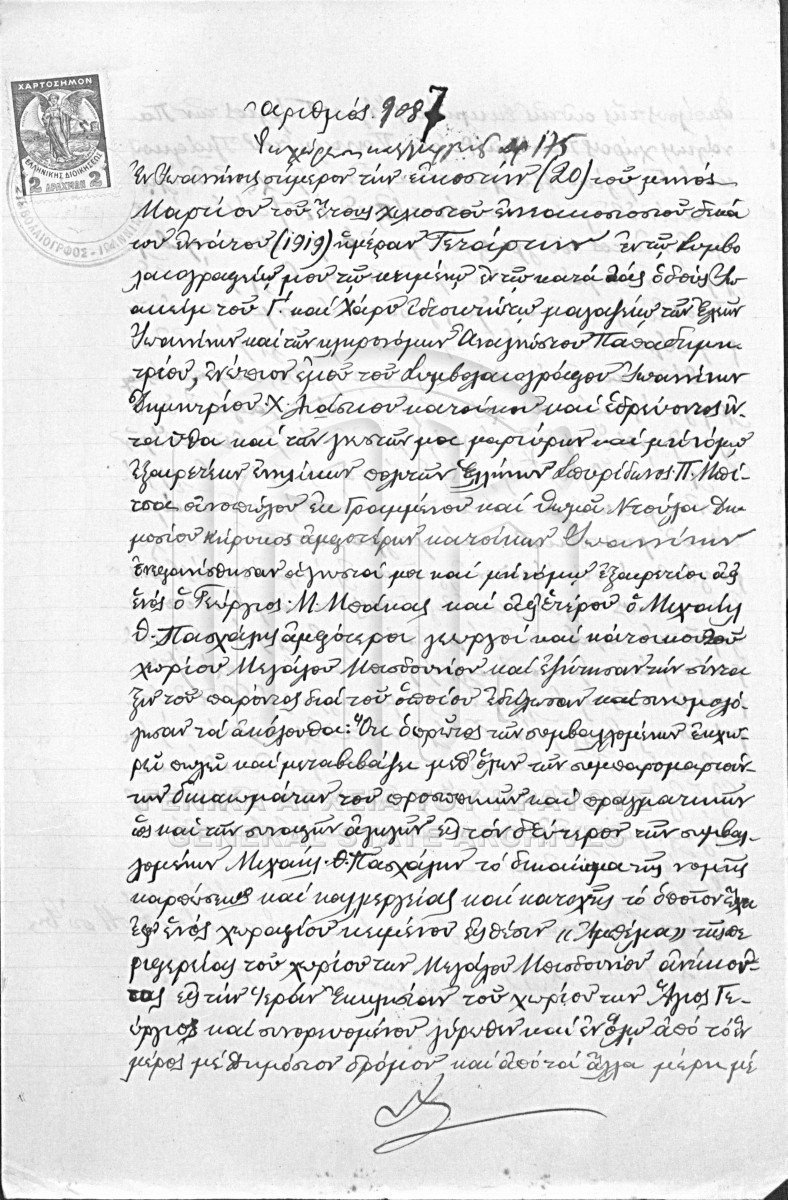 ΧΑΡΤΟΣΗΜΟΝ
ΕΛΛΗΝΙΚΗΣ ΔΙΟΙΚΗΣΕΩΣ
2 ΔΡΑΧΜΑΙ 2
ΣΥΜΒΟΛΑΙΟΓΡΑΦΟΣ - ΙΩΑΝΝΙΝ
Αριθμός 9087
Εκχώρησις καλλιεργείας δρ 175
Εν Ιωαννίνοις σήμερον την εικοστήν (20) του μηνός
Μαρτίου του έτους χιλιοστού εννεακοσιοστού δεκά
του εννάτου (1919) ημέραν Τετάρτην εν τω Συμβο
λαιογραφείω μου τω κειμένω εν τω κατά τας οδούς Ιω
ακείμ του Γ΄. και Χάρυ ιδιοκτήτω μαγαζείω των
Ιωαννίνων και των κληρονόμων Αναγνώστου Παπαδημη
τρίου, ενώπιον εμού του Συμβολαιογράφου Ιωαννίνων
Δημητρίου Χ. κατοίκου και εδρεύοντος εν
ταύθα και των γνωστών μοι μαρτύρων και μη νόμω
εξαιρετέων ενηλίκων πολιτών Ελλήνων Σπυρίδωνος Π. Μπί
τσα οινοπώλου εκ Γραμμένου και Θωμά Ντούλα Δη
μοσίου κήρυκος αμφοτέρων κατοίκων Ιωαννίνων
ενεφανίσθησαν οι γνωστοί μοι και μη νόμω εξαιρετέοι αφ
ενός ο Γεώργιος Μ. Μπάκας και αφ' ετέρου ο Μιχαήλ
Θ. Πασχάλης αμφότεροι γεωργοί και κάτοικοι του
χωρίου Μεγάλου Μπισδουνίου και εζήτησαν την σύντα
ξιν του παρόντος διά του οποίου εδήλωσαν και συνωμολό
γησαν τα ακόλουθα: Ότι ο πρώτος των συμβαλλομένων εκχω
ρεί πωλεί και μεταβιβάζει μεθ' όλων των συμπαρομαρτούν
των δικαιωμάτων του προσωπικών και πραγματικών
ως και των συναφών αγωγών εις τον δεύτερον των συμβαλ
λομένων Μιχαήλ Θ. Πασχάλην το δικαίωμα της νομής
καρπώσεως και καλλιεργείας και κατοχής το οποίον έχει
εφ' ενός χωραφίου κειμένου εις θέσιν «Αμπέλια» της πε
ριφερείας του χωρίου των Μεγάλου Μπισδουνίου ανήκον
τος εις την Ιεράν Εκκλησίαν του χωρίου των Άγιος Γε
ώργιος και συνορευομένου γύρωθεν και εν όλω από το έν
μέρος με Δημόσιον δρόμον και από τα άλλα μέρη με
ΓΕΝΙΚΑ ΑΡΧΕΙΑ ΤΟΥ ΚΡΑΤΟΥΣ
GENERAL STATE ARCHIVES